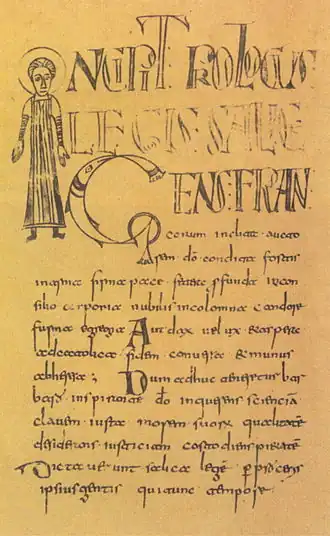 INCIPIT PROLOGUS
LEGIS SALICE
GENS FRAN
corum inclita aucto
rem do condita fortis
in arma firma pace fetera profunda in con
silio corporia nubilis incolomna candore
furma egregia Audax velux et aspera
ad catholica fidem conversa et munus
ab heresa; Dum adhuc teneretur bar
bara inspirante do inquerens sciencia
clavem iusta morem suorum qualitatem
desiderans iusticiam costodiens pietatem
Dictaverunt salica lege per proceris
ipsius gentis qui tunc tempore